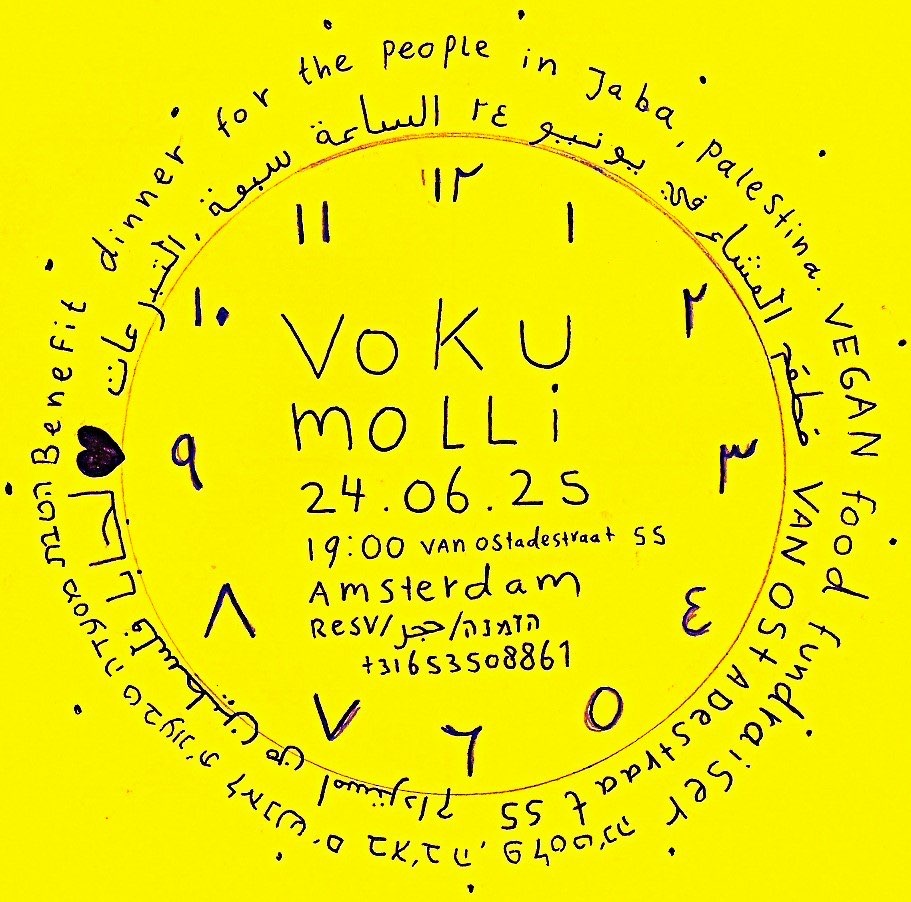 Benefit dinner for the people in Jaba, palestina. VEGAN food fundraiser
הטבת טבעונית לאנשים פלסטינה
مطعم العشاء في يونيو ٢٤ الساعة سبعة, التبرعات
فلسطين من امستردام
VAN OStADestraat 55
١٢
١
٢
٣
٤
٥
٦
٧
٨
٩
١٠
١١
VOKU
mOLLi
24.06.25
19:00 VAN OStadestraat 55
Amsterdam
ReSV/حجز/הזמנה
+31653508861